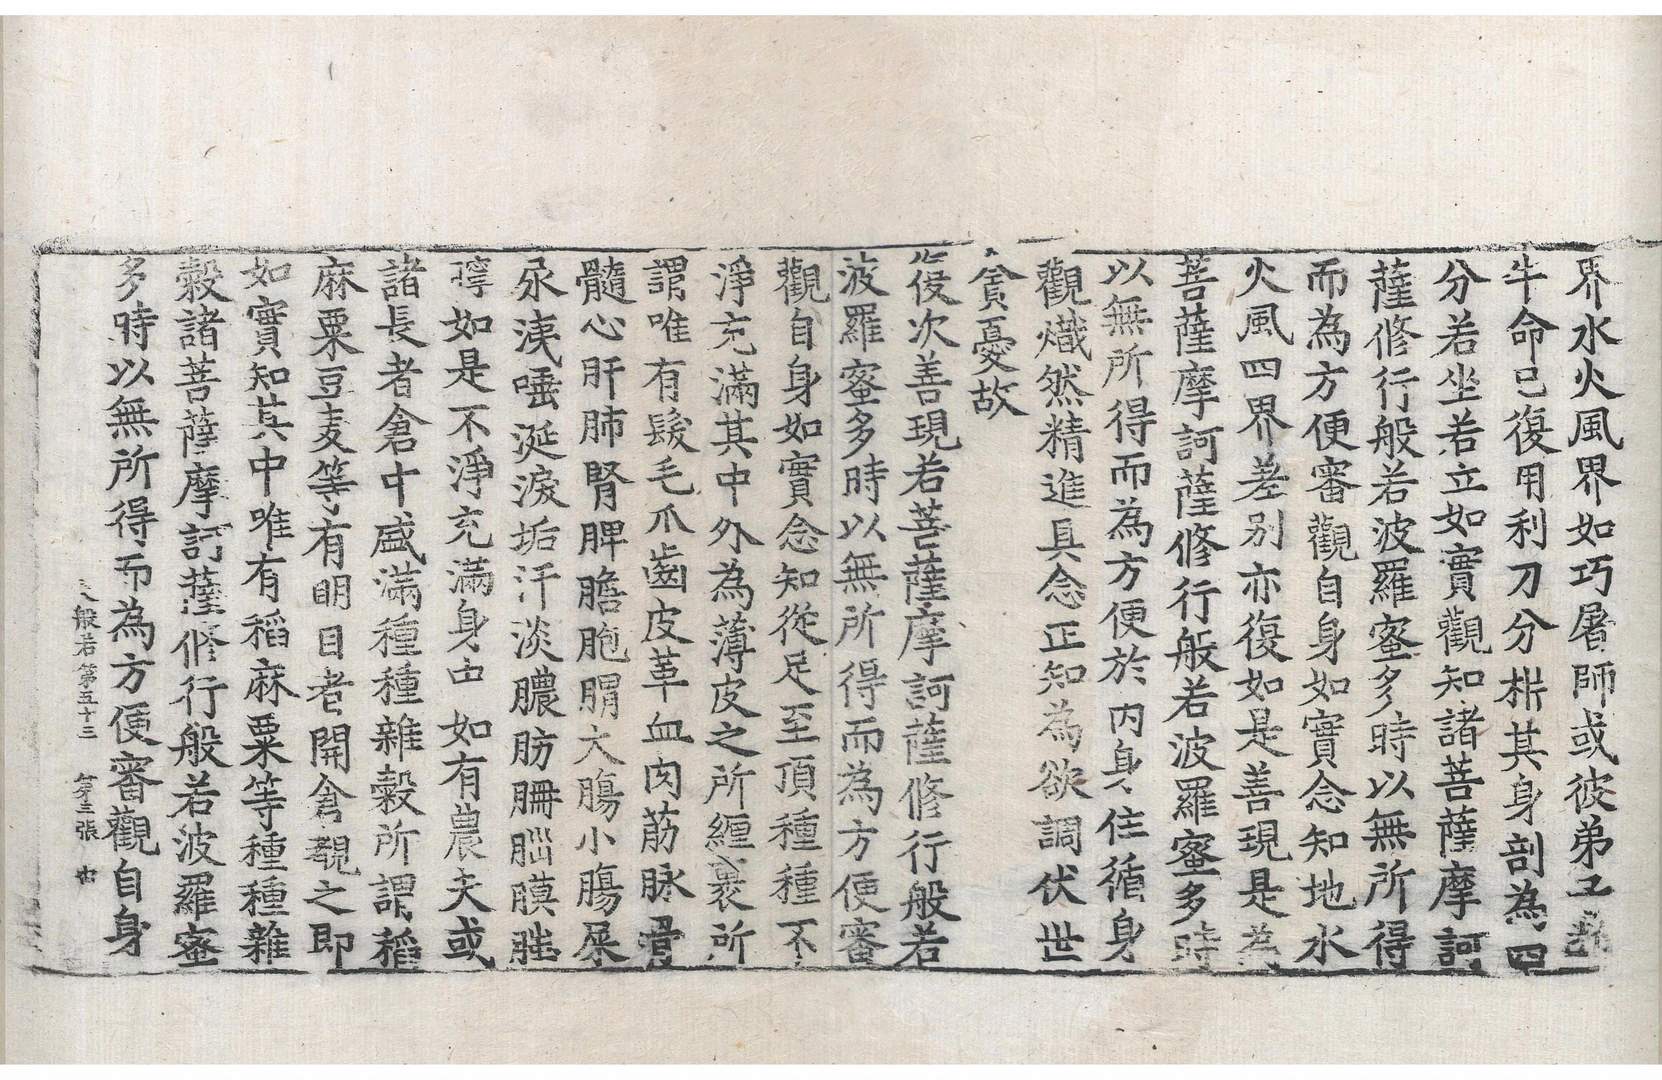 界水火風界如巧屠師或彼弟子
牛命已復用利刀分析其身剖為四
分若坐若立如實觀知諸菩薩摩訶
薩修行般若波羅蜜多時以無所得
而為方便審觀自身如實念知地水
火風四界差別亦復如是善現是為
菩薩摩訶薩修行般若波羅蜜多時
以無所得而為方便於內身住循身
觀熾然精進具念正知為欲調伏世
貪憂故
復次善現若菩薩摩訶薩修行般若
波羅蜜多時以無所得而為方便審
觀自身如實念知從足至頂種種不
淨充滿其中外為薄皮之所纏裹所
謂唯有髮毛爪齒皮革血肉筋脉骨
髓心肝肺腎脾膽胞胃大腸小腸屎
尿洟唾涎淚垢汗淡膿肪𦙱腦膜聹
聹如是不淨充滿身中如有農夫或
諸長者倉中盛滿種種雜穀所謂稻
麻粟豆麦等有明目者開倉覩之即
如實知其中唯有稻麻粟等種種雜
穀諸菩薩摩訶薩修行般若波羅蜜
多時以無所得而為方便審觀自身
大般若第五十三 第三張 由